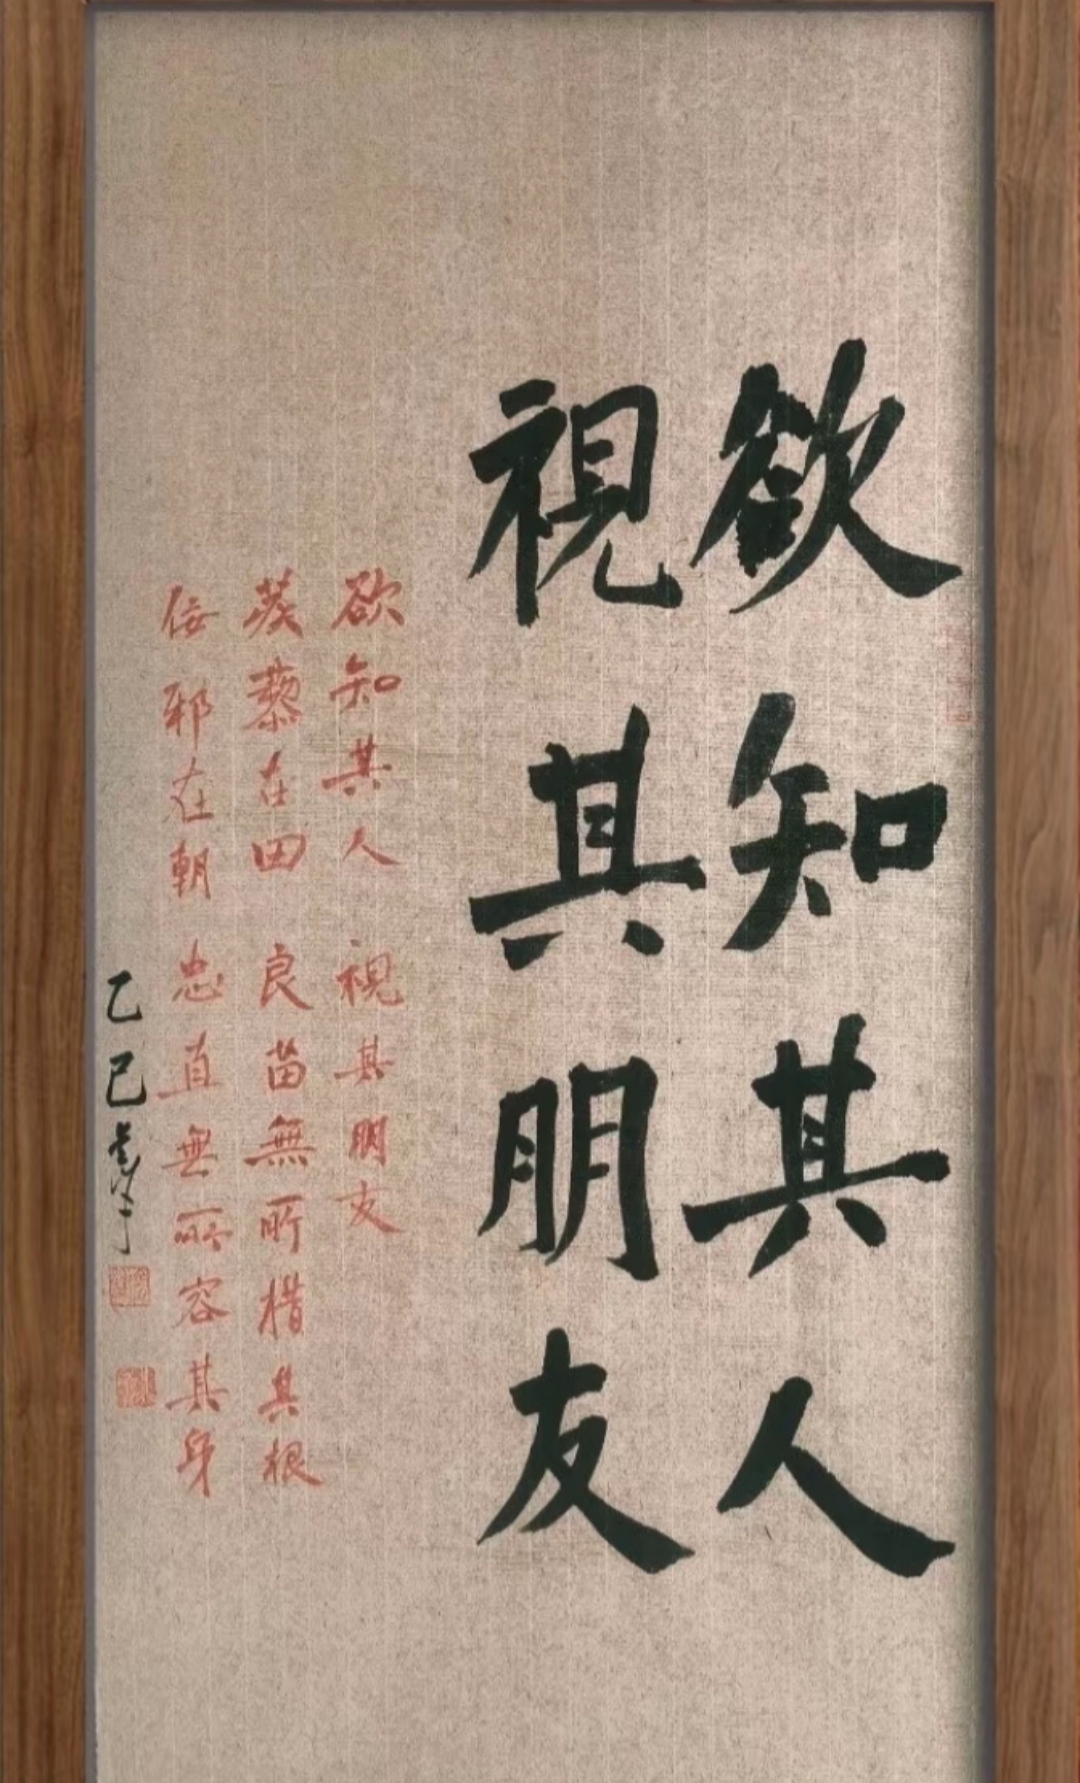 欲知其人
視其朋友
欲知其人 視其朋友
蒺藜在田 良苗無所措其根
佞邪在朝 忠直無所容其身
乙巳